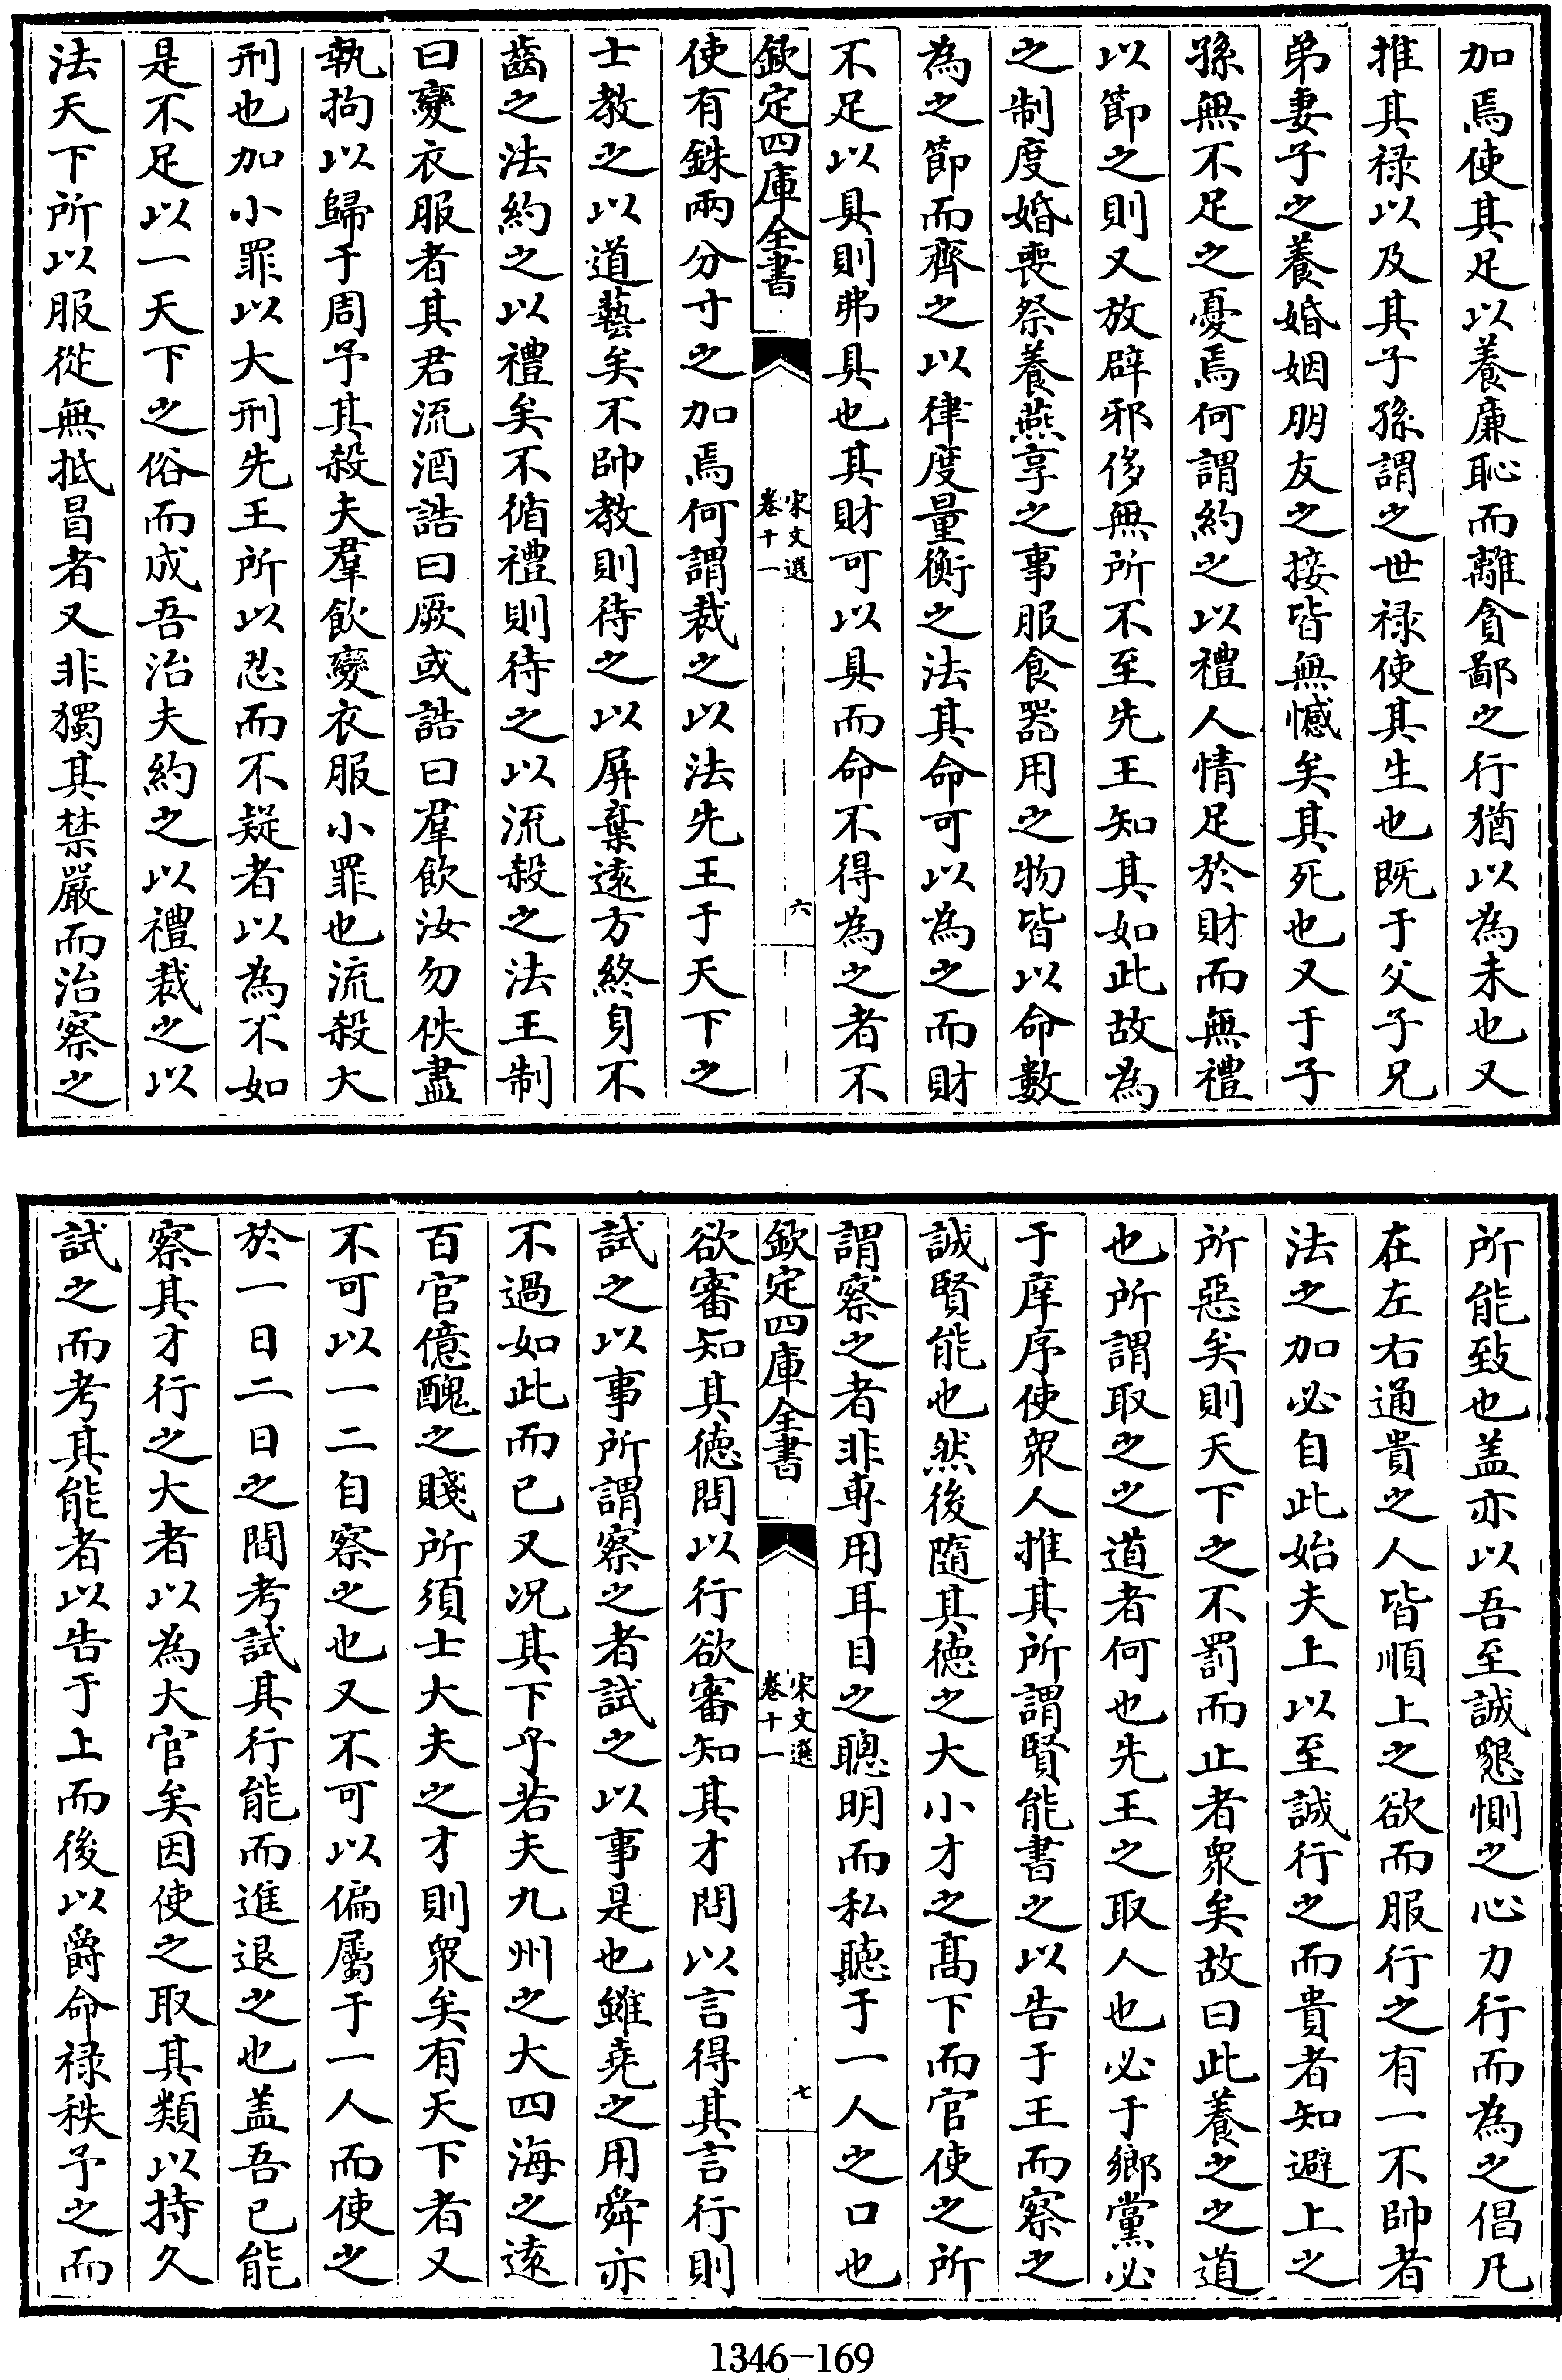 加焉使其足以養廉恥而離貪鄙之行猶以為未也又
推其祿以及其子孫謂之世祿使其生也既于父子兄
弟妻子之養婚姻朋友之接皆無憾矣其死也又于子
孫無不足之憂焉何謂約之以禮人情足於財而無禮
以節之則又放辟邪侈無所不至先王知其如此故為
之制度婚喪祭養燕享之事服食器用之物皆以命數
為之節而齊之以律度量衡之法其命可以為之而財
不足以具則弗具也其財可以具而命不得為之者不
欽定四庫全書
宋文選
卷十一
六
使有銖兩分寸之加焉何謂裁之以法先王于天下之
士教之以道藝矣不帥教則待之以屏棄遠方終身不
齒之法約之以禮矣不循禮則待之以流殺之法王制
曰變衣服者其君流酒誥曰厥或誥曰羣飲汝勿佚盡
執拘以歸于周予其殺夫羣飲變衣服小罪也流殺大
刑也加小罪以大刑先王所以忍而不疑者以為不如
是不足以一天下之俗而成吾治夫約之以禮裁之以
法天下所以服從無抵冒者又非獨其禁嚴而治察之
所能致也盖亦以吾至誠懇惻之心力行而為之倡凡
在左右通貴之人皆順上之欲而服行之有一不帥者
法之加必自此始夫上以至誠行之而貴者知避上之
所惡矣則天下之不罰而止者衆矣故曰此養之之道
也所謂取之之道者何也先王之取人也必于鄉黨必
于庠序使衆人推其所謂賢能書之以告于王而察之
誠賢能也然後隨其德之大小才之髙下而官使之所
謂察之者非專用耳目之聰明而私聽于一人之口也
欽定四庫全書
宋文選
卷十一
七
欲審知其德問以行欲審知其才問以言得其言行則
試之以事所謂察之者試之以事是也雖堯之用舜亦
不過如此而已又况其下乎若夫九州之大四海之遠
百官億醜之賤所須士大夫之才則衆矣有天下者又
不可以一二自察之也又不可以偏屬于一人而使之
於一日二日之間考試其行能而進退之也盖吾已能
察其才行之大者以為大官矣因使之取其類以持久
試之而考其能者以告于上而後以爵命祿秩予之而
1346-169